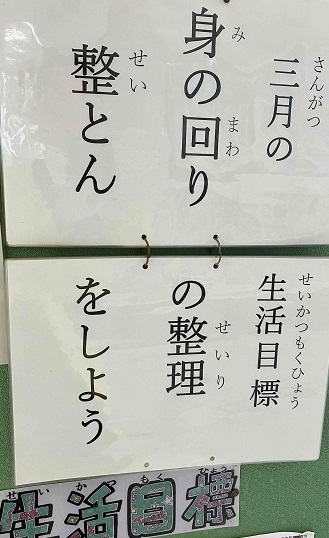 三月の生活目標
さんがつ せいかつもくひょう
身の回りの整理
み まわ せいり
整とんをしよう
せい
せい かつ もく ひょう
生活目標